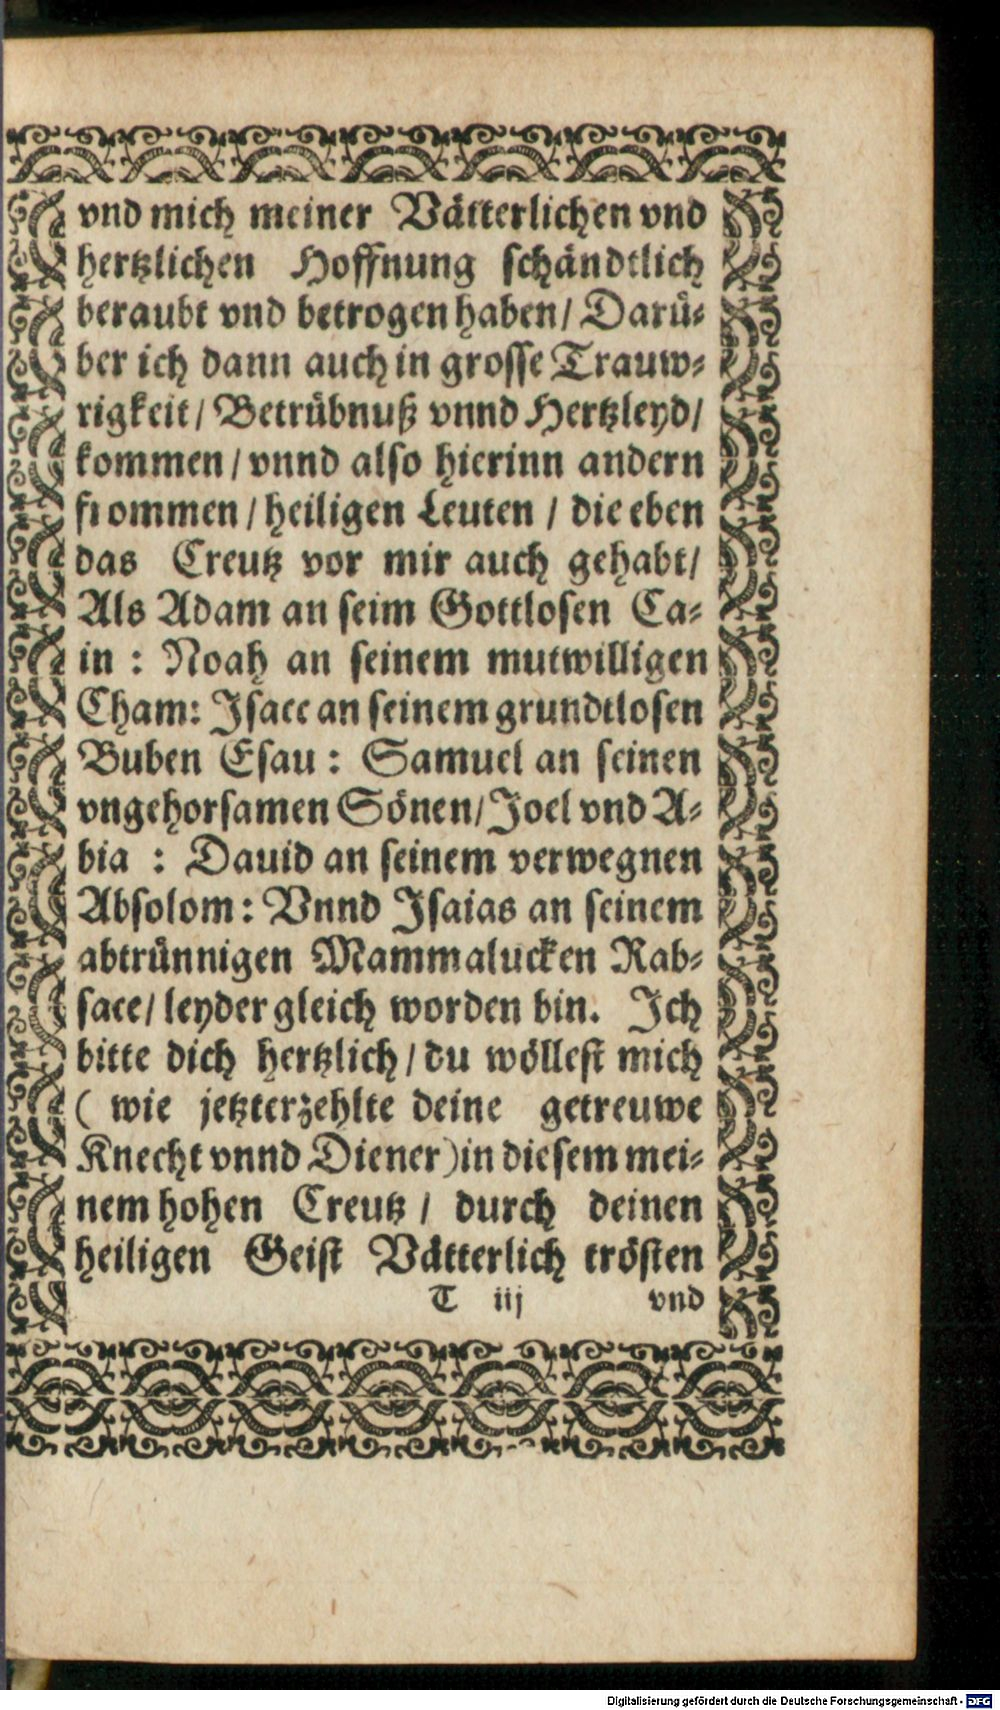 vnd mich meiner Vätterlichen vnd
hertzlichen Hoffnung schändtlich
beraubt vnd betrogen haben/ Darü-
ber ich dann auch in grosse Trauw-
rigkeit/ Betrübnuß vnnd Hertzleyd/
kommen/ vnnd also hierinn andern
frommen/ heiligen Leuten / die eben
das Creutz vor mir auch gehabt/
Als Adam an seim Gottlosen Ca-
in : Noah an seinem mutwilligen
Cham: Isacc an seinem grundtlosen
Buben Esau : Samuel an seinen
vngehorsamen Sönen/ Joel vnd A-
bia : Dauid an seinem verwegnen
Absolom: Vnnd Isaias an seinem
abtrünnigen Mammalucken Rab-
sace/ leyder gleich worden bin. Ich
bitte dich hertzlich/ du wöllest mich
( wie jetzterzehlte deine getreuwe
Knecht vnnd Diener) in diesem mei-
nem hohen Creutz / durch deinen
heiligen Geist Vätterlich trösten
T iij vnd
Digitalisierung gefördert durch die Deutsche Forschungsgemeinschaft - DFG